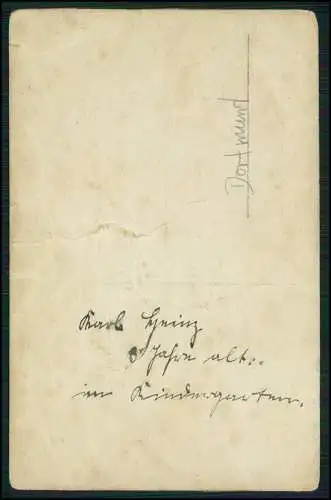 Dortmund
Karl Heinz
Jahre alt.
im Kindergarten.